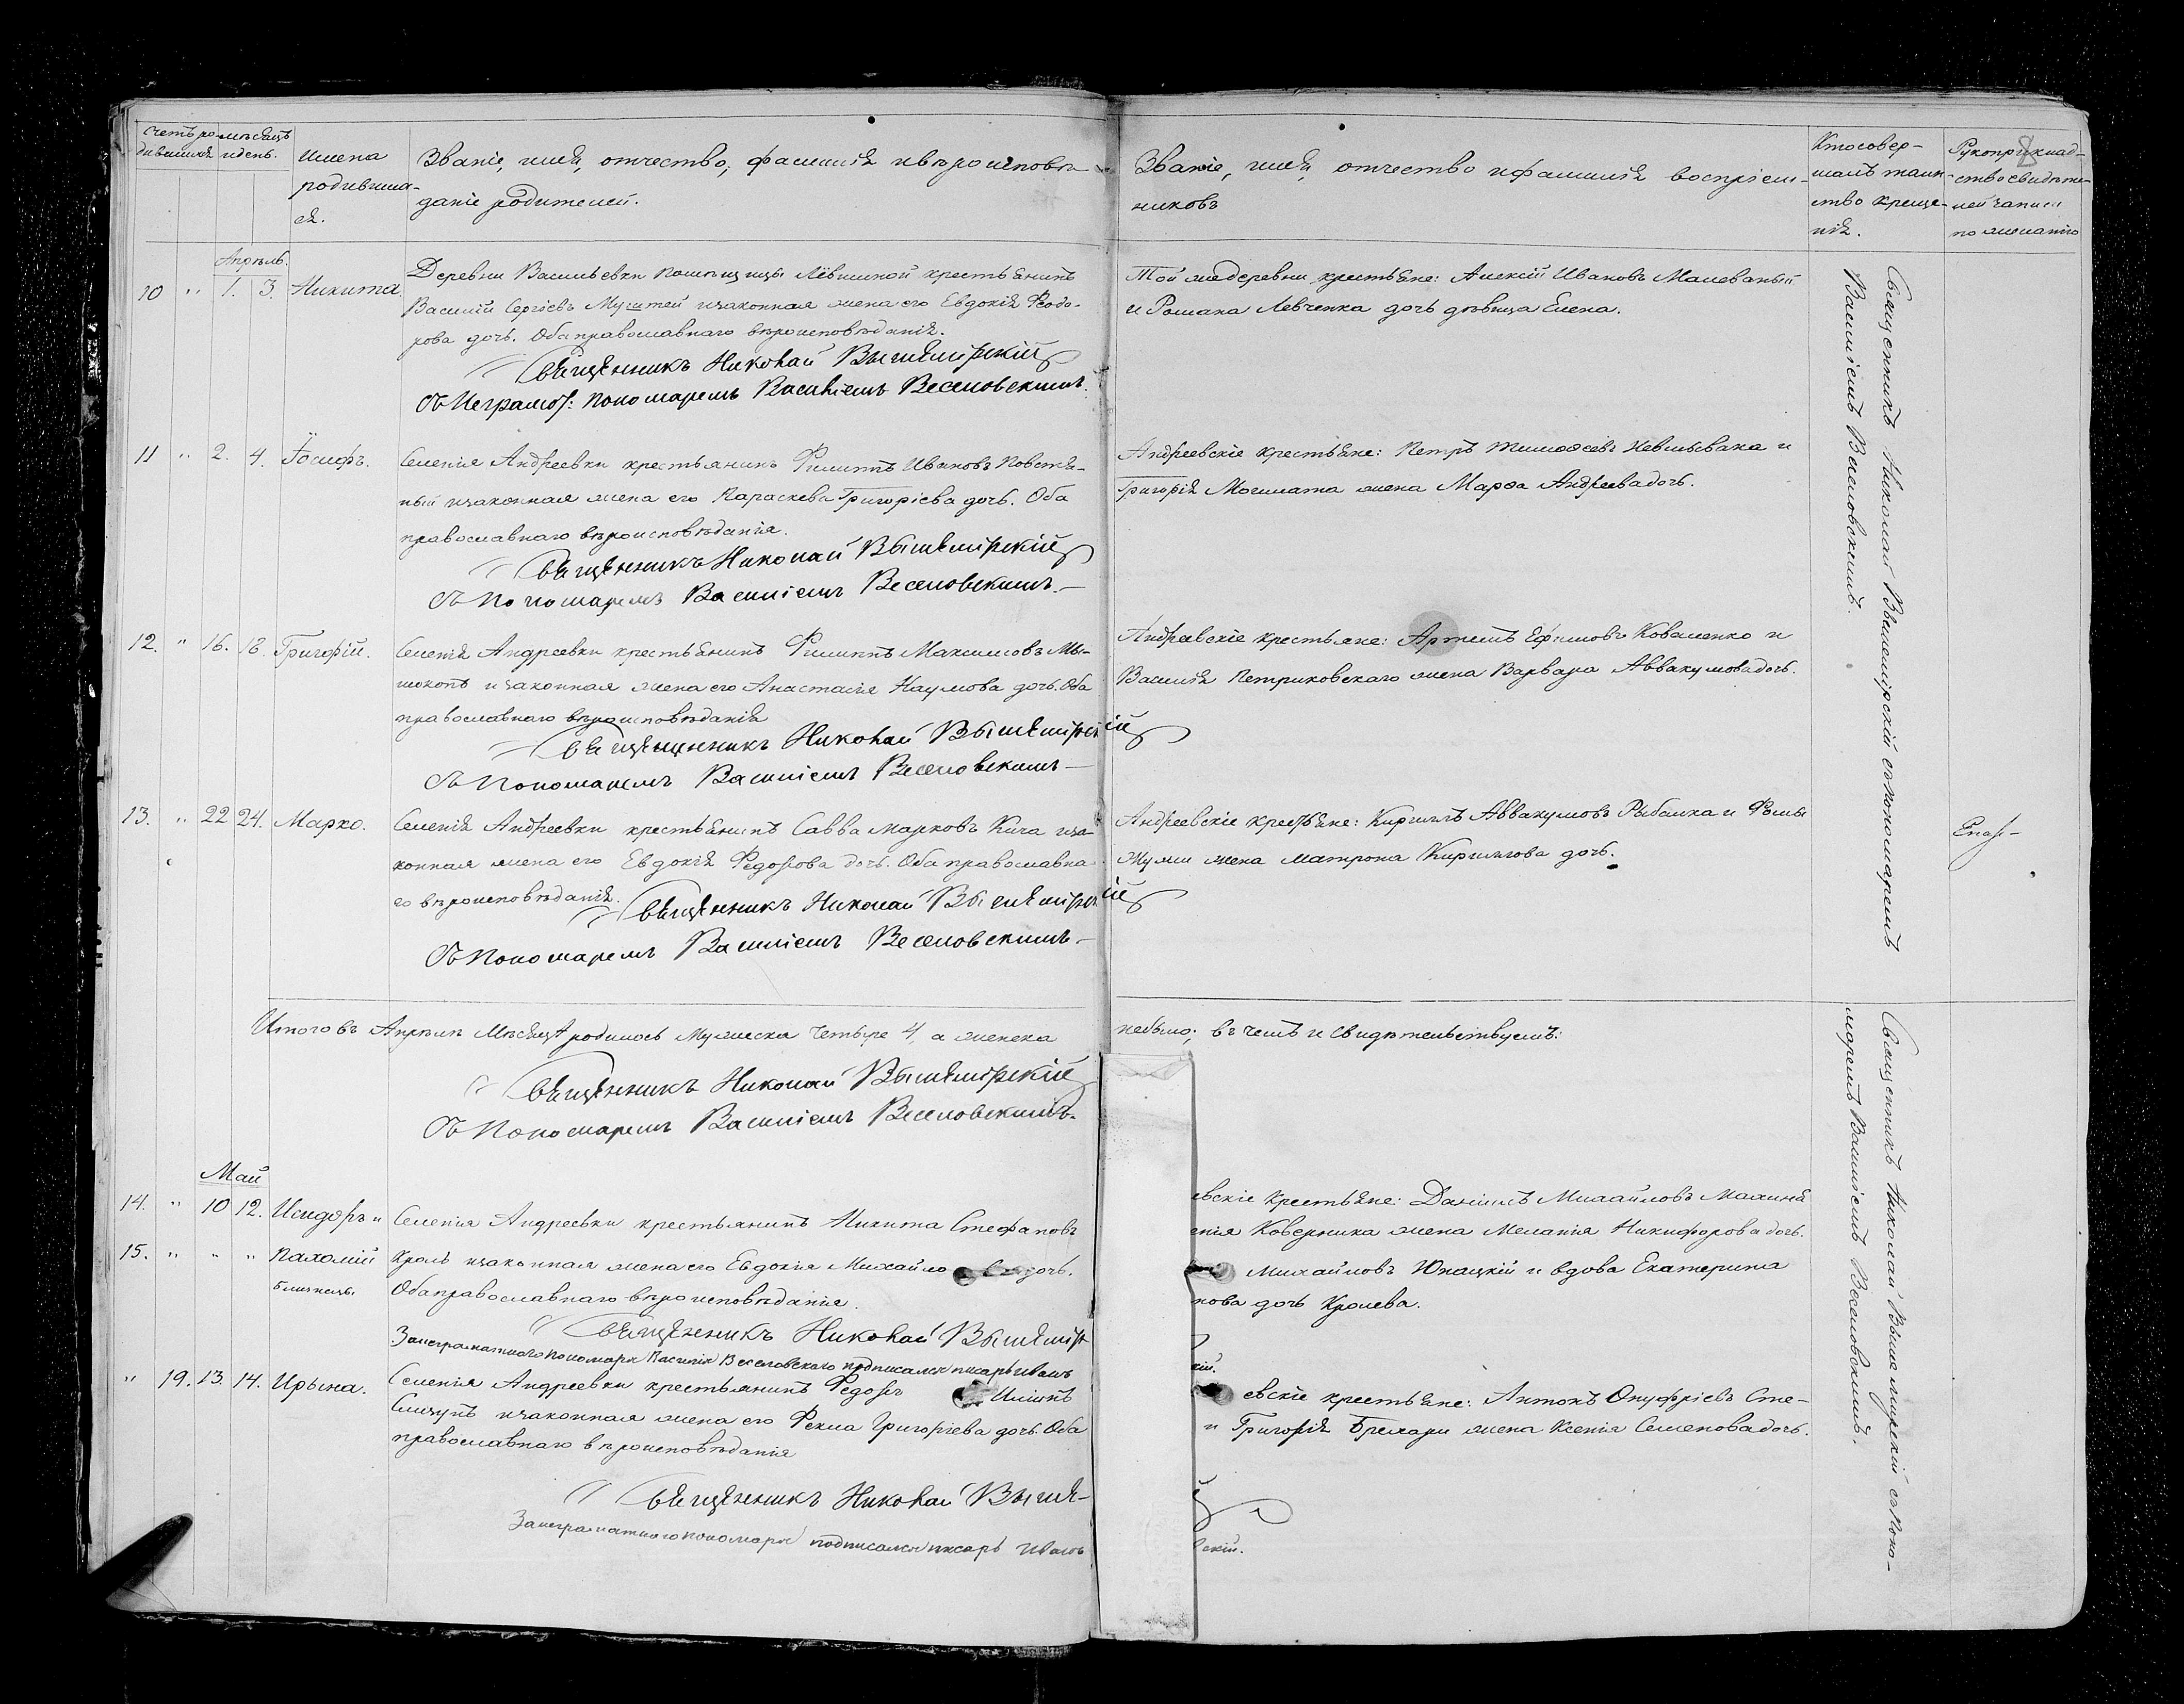 Счетъ ро- мѣсяцъ
дившихся и день.
Имена
родивших-
ся.
Званіе, имя, отчество, фамилія и вѣроисповѣ-
даніе родителей.
Званіе, имя, отчество и фамилія воспріем-
никовъ
Кто совер-
шалъ таин-
ство креще-
нія.
Рукоприклад-
ство свидѣте-
лей записи
по желанію
8
Апрѣль.
10 " 1. 3. Никита.
Деревни Васильевки помѣщицы Лёвшиной крестьянинъ
Василій Сергіевъ и законная жена его Евдокія Ѳеодо-
рова дочь. Оба православнаго вѣроисповѣданія.
Священникъ Николай Вышемірскій
Съ Неграмот: пономаремъ Василіемъ Веселовскимъ.
Той же деревни крестьяне: Алексій Ивановъ Малеваный
и Романа Левченка дочь дѣвица Елена.
11 " 2. 4. Іосифъ.
Селенія Андреевки крестьянинъ Филиппъ Ивановъ Повстя-
ный и законная жена его Параскева Григоріева дочь. Оба
православнаго вѣроисповѣданія.
Священникъ Николай Вышемірскій
Съ пономаремъ Василіемъ Веселовскимъ.
Андреевскіе крестьяне: Петръ Тимоѳеевъ и
Григорія Могилата жена Марѳа Андреева дочь.
12. " 16. 18. Григорій.
Селенія Андреевки крестьянинъ Филиппъ Максимовъ Мы-
шокопъ и законная жена его Анастасія Наумова дочь. Оба
православнаго вѣроисповѣданія
Священникъ Николай Вышемірскій
Съ Пономаремъ Василіемъ Веселовскимъ
Андреевскіе крестьяне: Артемъ Ефимовъ Коваленко и
Василія Петриковскаго жена Варвара Аввакумова дочь.
13. " 22 24. Марко.
Селенія Андреевки крестьянинъ Савва Марковъ Кича и за-
конная жена его Евдокія Федорова дочь. Оба православна-
го вѣроисповѣданія.
Священникъ Николай Вышемірскій
Съ Пономаремъ Василіемъ Веселовскимъ.
Андреевскіе крестьяне: Кириллъ Аввакумовъ Рыбалка и Фомы
жена Матрона Кириллова дочь.
Священникъ Николай Вышемірскій съ пономаремъ
Василіемъ Веселовскимъ.
Итого въ Апрѣлѣ Мѣсяцѣ родилось Мужеска Четыре 4, а женска
небыло; въ чемъ и свидѣтельствуемъ:
Священникъ Николай Вышемірскій
Съ Пономаремъ Василіемъ Веселовскимъ.
Май
14. " 10 12. Исидоръ и
Селенія Андреевки крестьянинъ Никита Стефановъ
15. " " " Пахомій
Кроль и законная жена его Евдокія Михайлова дочь.
близнецы.
Оба православнаго вѣроисповѣданія.
Священникъ Николай Вышемір
За неграматнаго пономаря Василія Веселовскаго подписался писарь Иванъ
евскіе крестьяне: Даніилъ Михайловъ Махиня
енія Коверника жена Меланія Никифорова дочь.
Михайловъ Юнацкій и вдова Екатерина
нова дочь Кролева.
кій.
" 19. 13. 14. Ирына.
Селенія Андреевки крестьянинъ Федоръ
и законная жена его Фекла Григоріева дочь. Оба
православнаго вѣроисповѣданія
Священникъ Николай Выше-
За неграматнаго пономаря подписался писарь Иванъ
евскіе крестьяне: Антонъ Онуфріевъ Сте-
и Григорія жена Ксенія Семенова дочь.
скій.
Священникъ Николай Вышемирскій съ Поно-
маремъ Василіемъ Веселовскимъ.